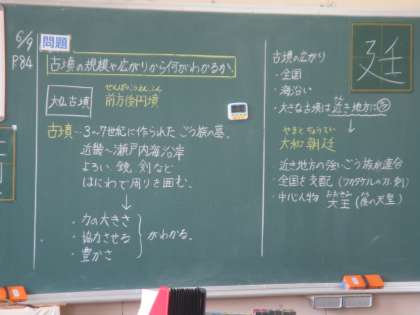 6/9
P84
問題
古墳の規模や広がりから何がわかるか。
大仙古墳
ぜんぽうこうえんふん
前方後円墳
古墳~3~7世紀に作られたごう族の墓。
近畿~瀬戸内海沿岸
よろい、鏡、剣など
はにわで周りを囲む。
・力の大きさ
・協力させる
・豊かさ
がわかる。
古墳の広がり
・全国
・海沿い
・大きな古墳は近き地方に多
やまとちょうてい
大和朝廷
近き地方の強いごう族が連合
・全国を支配(ワカタケルの刀、剣)
・中心人物 大王(後の天皇)
廷